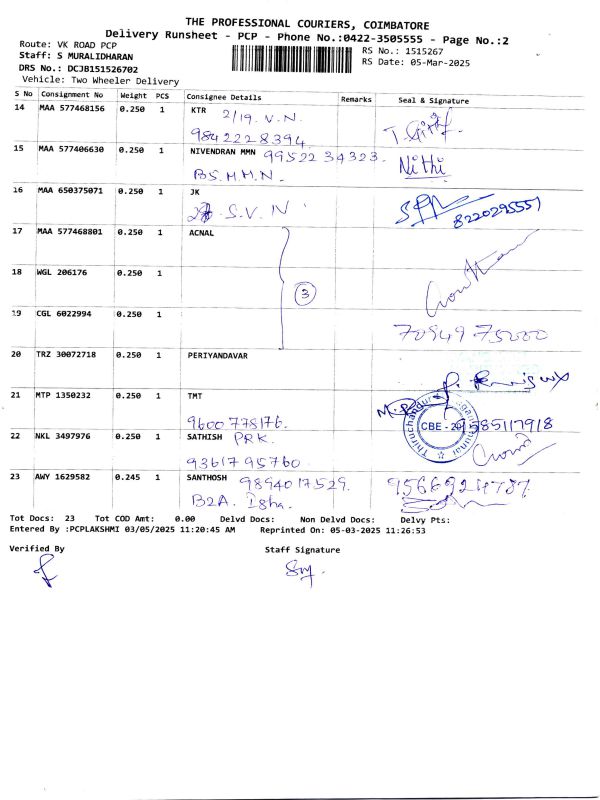 THE PROFESSIONAL COURIERS, COIMBATORE
Delivery Runsheet - PCP - Phone No.:0422-3505555 - Page No.:2
Route: VK ROAD PCP
RS No.: 1515267
Staff: S MURALIDHARAN
RS Date: 05-Mar-2025
DRS No.: DCJB151526702
Vehicle: Two Wheeler Delivery
S No Consignment No Weight PCS Consignee Details Remarks Seal & Signature
14 MAA 577468156 0.250 1 KTR 2/19. V.N.
9842228394.
15 MAA 577406630 0.250 1 NIVENDRAN MMN 99522 34323. Nithi
B.S.M.M.N.
16 MAA 650375071 0.250 1 JK
S.V.N. 8220295551
17 MAA 577468801 0.250 1 ACNAL
18 WGL 206176 0.250 1 3
19 CGL 6022994 0.250 1
70949 75000
20 TRZ 30072718 0.250 1 PERIYANDAVAR
21 MTP 1350232 0.250 1 TMT
9600 778176. CBE - 20
22 NKL 3497976 0.250 1 SATHISH PRK.
93617 95760
23 AWY 1629582 0.245 1 SANTHOSH 9894017529.
B2A. Isha.
Tot Docs: 23 Tot COD Amt: 0.00 Delvd Docs: Non Delvd Docs: Delvy Pts:
Entered By :PCPLAKSHMI 03/05/2025 11:20:45 AM Reprinted On: 05-03-2025 11:26:53
Verified By Staff Signature